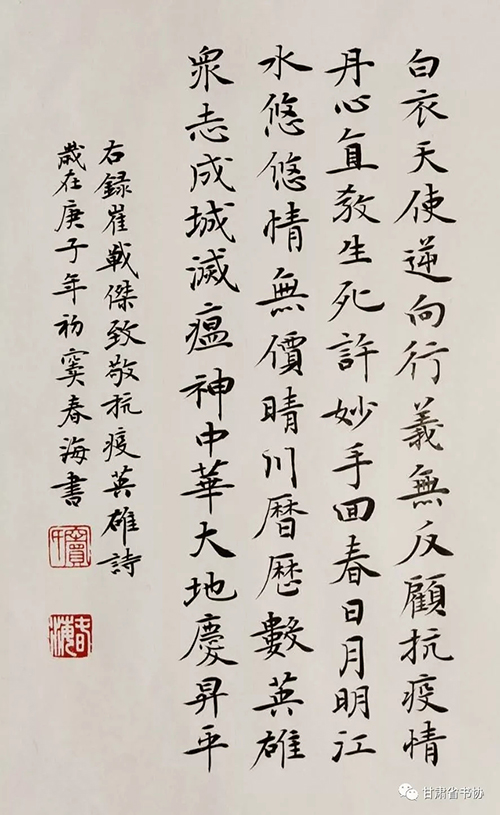 白衣天使逆向行義無反顧抗疫情
丹心直教生死許妙手回春日月明江
水悠悠情無價晴川曆歷數英雄
眾志成城滅瘟神中華大地慶昇平
右錄崔戰傑致敬抗疫英雄詩
歲在庚子年初竇春海書
春海
甘肃省书协